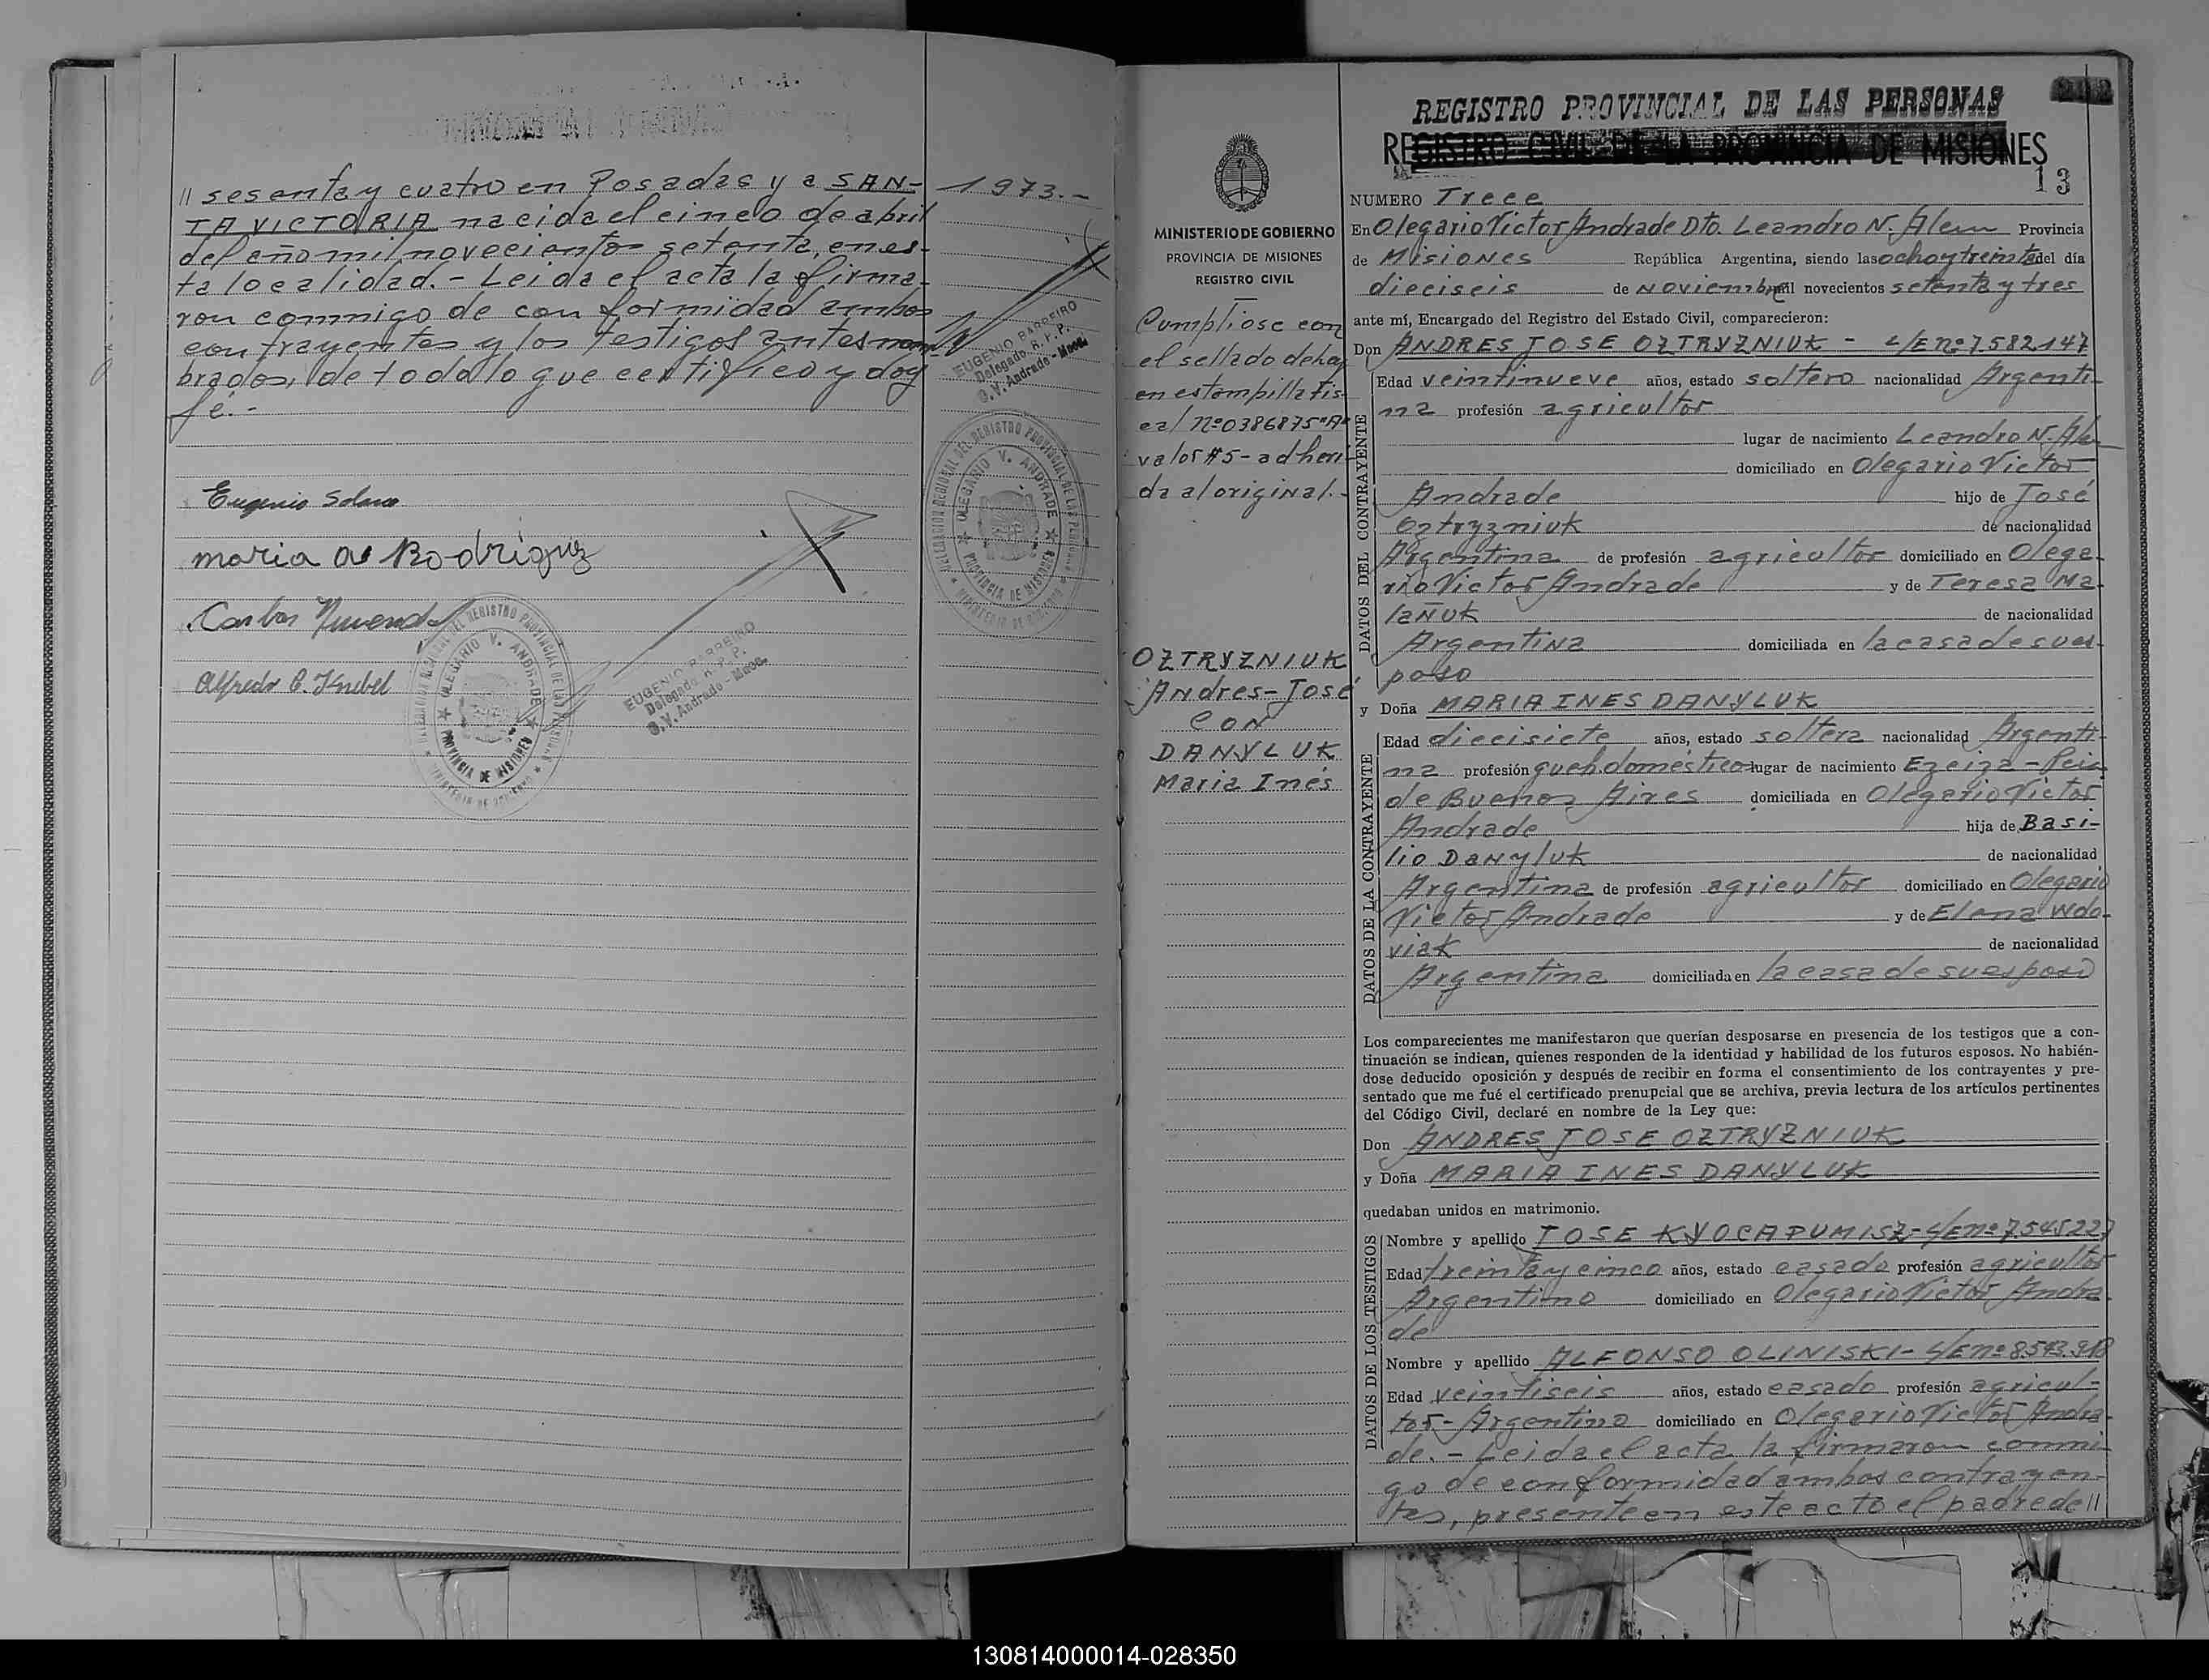 // sesenta y cuatro en Posadas y a SAN-
TA VICTORIA nacida el cinco de abril
del año mil novecientos setenta, en es-
ta localidad.- Leida el acta la firma-
ron conmigo de conformidad ambos
contrayentes y los testigos antes nom-
brados, de todo lo que certifico y doy
fé.-
1973.-
EUGENIO BARREIRO
Delegado R. P. P.
O. V. Andrade - Mnes.
OLEGARIO V. ANDRADE
PROVINCIA DE MISIONES
Eugenio Solano
maria Rodriguez
Carlos
Alfredo C. Knebel
EUGENIO BARREIRO
Delegado R. P. P.
O. V. Andrade - Mnes.
OLEGARIO V. ANDRADE
PROVINCIA DE MISIONES
MINISTERIO DE GOBIERNO
PROVINCIA DE MISIONES
REGISTRO CIVIL
Cumpliose con
el sellado de ley
en estampilla fis-
cal Nº 0386875 "A"
valor $5- adheri-
da al original.-
OZTRYZNIUK
Andres-José
con
DANYLUK
Maria Inés
REGISTRO PROVINCIAL DE LAS PERSONAS
REGISTRO CIVIL DE LA PROVINCIA DE MISIONES
13
NUMERO Trece
En Olegario Victor Andrade Dto. Leandro N. Alem Provincia
de Misiones República Argentina, siendo las ocho y treinta del día
dieciseis de noviembre mil novecientos setenta y tres
ante mí, Encargado del Registro del Estado Civil, comparecieron:
Don ANDRES JOSE OZTRYZNIUK - L/E nº 7.582147
DATOS DEL CONTRAYENTE
Edad veintinueve años, estado soltero nacionalidad Argenti-
na profesión agricultor
lugar de nacimiento Leandro N. Ale-
domiciliado en Olegario Victor
Andrade hijo de José
Oztryzniuk de nacionalidad
Argentina de profesión agricultor domiciliado en Olega-
rio Victor Andrade y de Teresa Ma-
lañuk de nacionalidad
Argentina domiciliada en la casa de su es-
poso
y Doña MARIA INES DANYLUK
DATOS DE LA CONTRAYENTE
Edad diecisiete años, estado soltera nacionalidad Argenti-
na profesión queh. domésticos lugar de nacimiento Ezeiza - Pcia
de Buenos Aires domiciliada en Olegario Victor
Andrade hija de Basi-
lio Danyluk de nacionalidad
Argentina de profesión agricultor domiciliado en Olegario
Victor Andrade y de Elena Wdo-
viak de nacionalidad
Argentina domiciliada en la casa de su esposo
Los comparecientes me manifestaron que querían desposarse en presencia de los testigos que a con-
tinuación se indican, quienes responden de la identidad y habilidad de los futuros esposos. No habién-
dose deducido oposición y después de recibir en forma el consentimiento de los contrayentes y pre-
sentado que me fué el certificado prenupcial que se archiva, previa lectura de los artículos pertinentes
del Código Civil, declaré en nombre de la Ley que:
Don ANDRES JOSE OZTRYZNIUK
y Doña MARIA INES DANYLUK
quedaban unidos en matrimonio.
DATOS DE LOS TESTIGOS
Nombre y apellido JOSE KYOCAPUMISZ - L/E nº 7.545227
Edad treinta y cinco años, estado casado profesión agricultor
Argentino domiciliado en Olegario Victor Andra-
de
Nombre y apellido ALFONSO OLINISKI - L/E nº 8.543.918
Edad veintiseis años, estado casado profesión agricul-
tor - Argentino domiciliado en Olegario Victor Andra-
de.- Leida el acta la firmaron conmi-
go de conformidad ambos contrayen-
tes, presente en este acto el padre de //
130814000014-028350